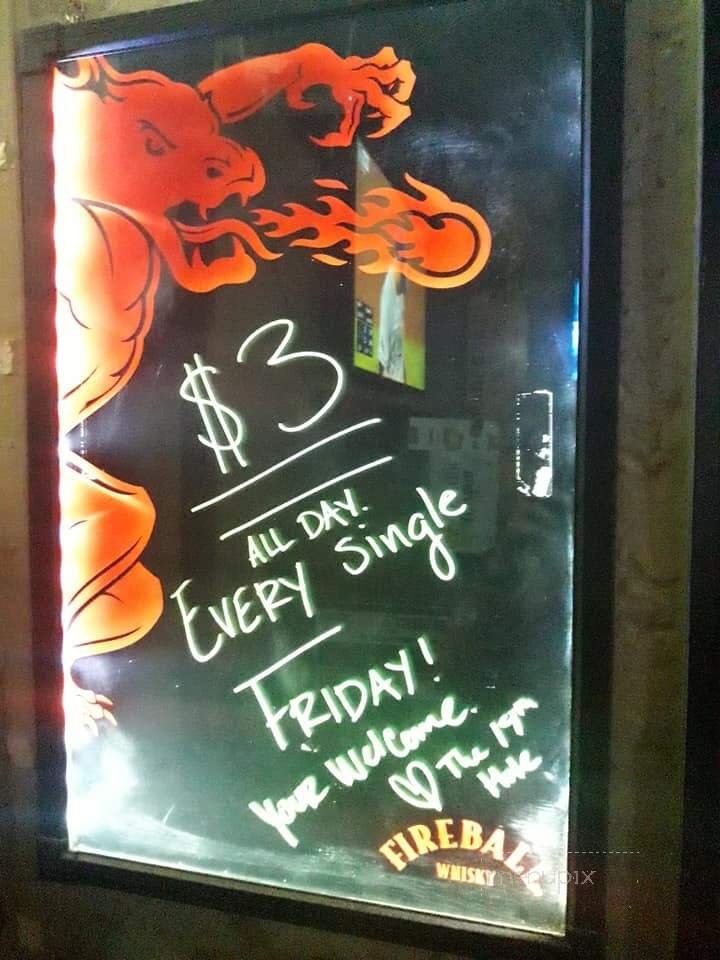 $3
ALL DAY.
EVERY Single
FRIDAY!
Your Welcome.
♡ The 19th
Hole
FIREBALL
WHISKY
menupix